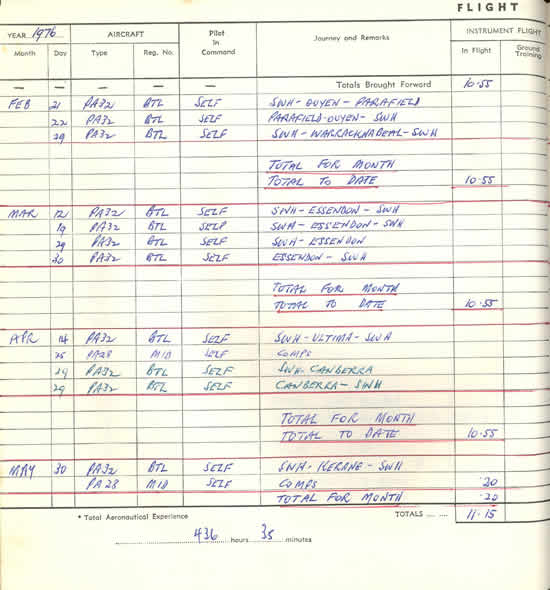 FLIGHT
YEAR 1976 AIRCRAFT Pilot in Command Journey and Remarks INSTRUMENT FLIGHT
Month Day Type Reg. No. In Flight Ground Training
— — — — — Totals Brought Forward 10.55
FEB 21 PA32 BTL SELF SWH - OUYEN - PARAFIELD
22 PA32 BTL SELF PARAFIELD - OUYEN - SWH
29 PA32 BTL SELF SWH - WARRACKNABEAL - SWH
TOTAL FOR MONTH
TOTAL TO DATE 10.55
MAR 12 PA32 BTL SELF SWH - ESSENDON - SWH
19 PA32 BTL SELF SWH - ESSENDON - SWH
29 PA32 BTL SELF SWH - ESSENDON
30 PA32 BTL SELF ESSENDON - SWH
TOTAL FOR MONTH
TOTAL TO DATE 10.55
APR 14 PA32 BTL SELF SWH - ULTIMA - SWH
25 PA28 MID SELF COMPS
29 PA32 BTL SELF SWH - CANBERRA
29 PA32 BTL SELF CANBERRA - SWH
TOTAL FOR MONTH
TOTAL TO DATE 10.55
MAY 30 PA32 BTL SELF SWH - KERANE - SWH
PA28 MID SELF COMPS .20
TOTAL FOR MONTH .20
* Total Aeronautical Experience TOTALS ... ... 11.15
436 hours 35 minutes